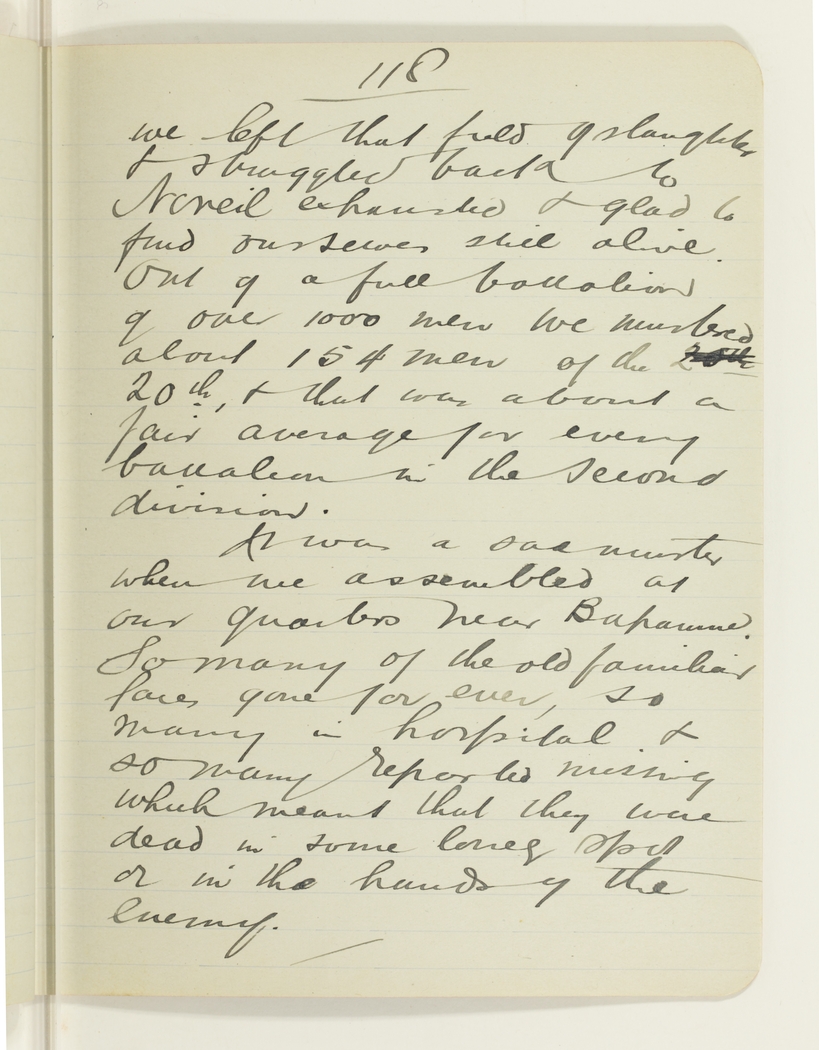 118
we left that field of slaughter
& struggled back to
Noreil exhausted & glad to
find ourselves still alive.
Out of a full battalion
of over 1000 men we mustered
about 154 men of the
20th, & that was about a
fair average for every
battalion in the second
division.
It was a sad muster
when we assembled at
our quarters near Bapaume.
So many of the old familiar
faces gone for ever, so
many in hospital &
so many reported missing
which meant that they were
dead in some lonely spot
or in the hands of the
enemy.